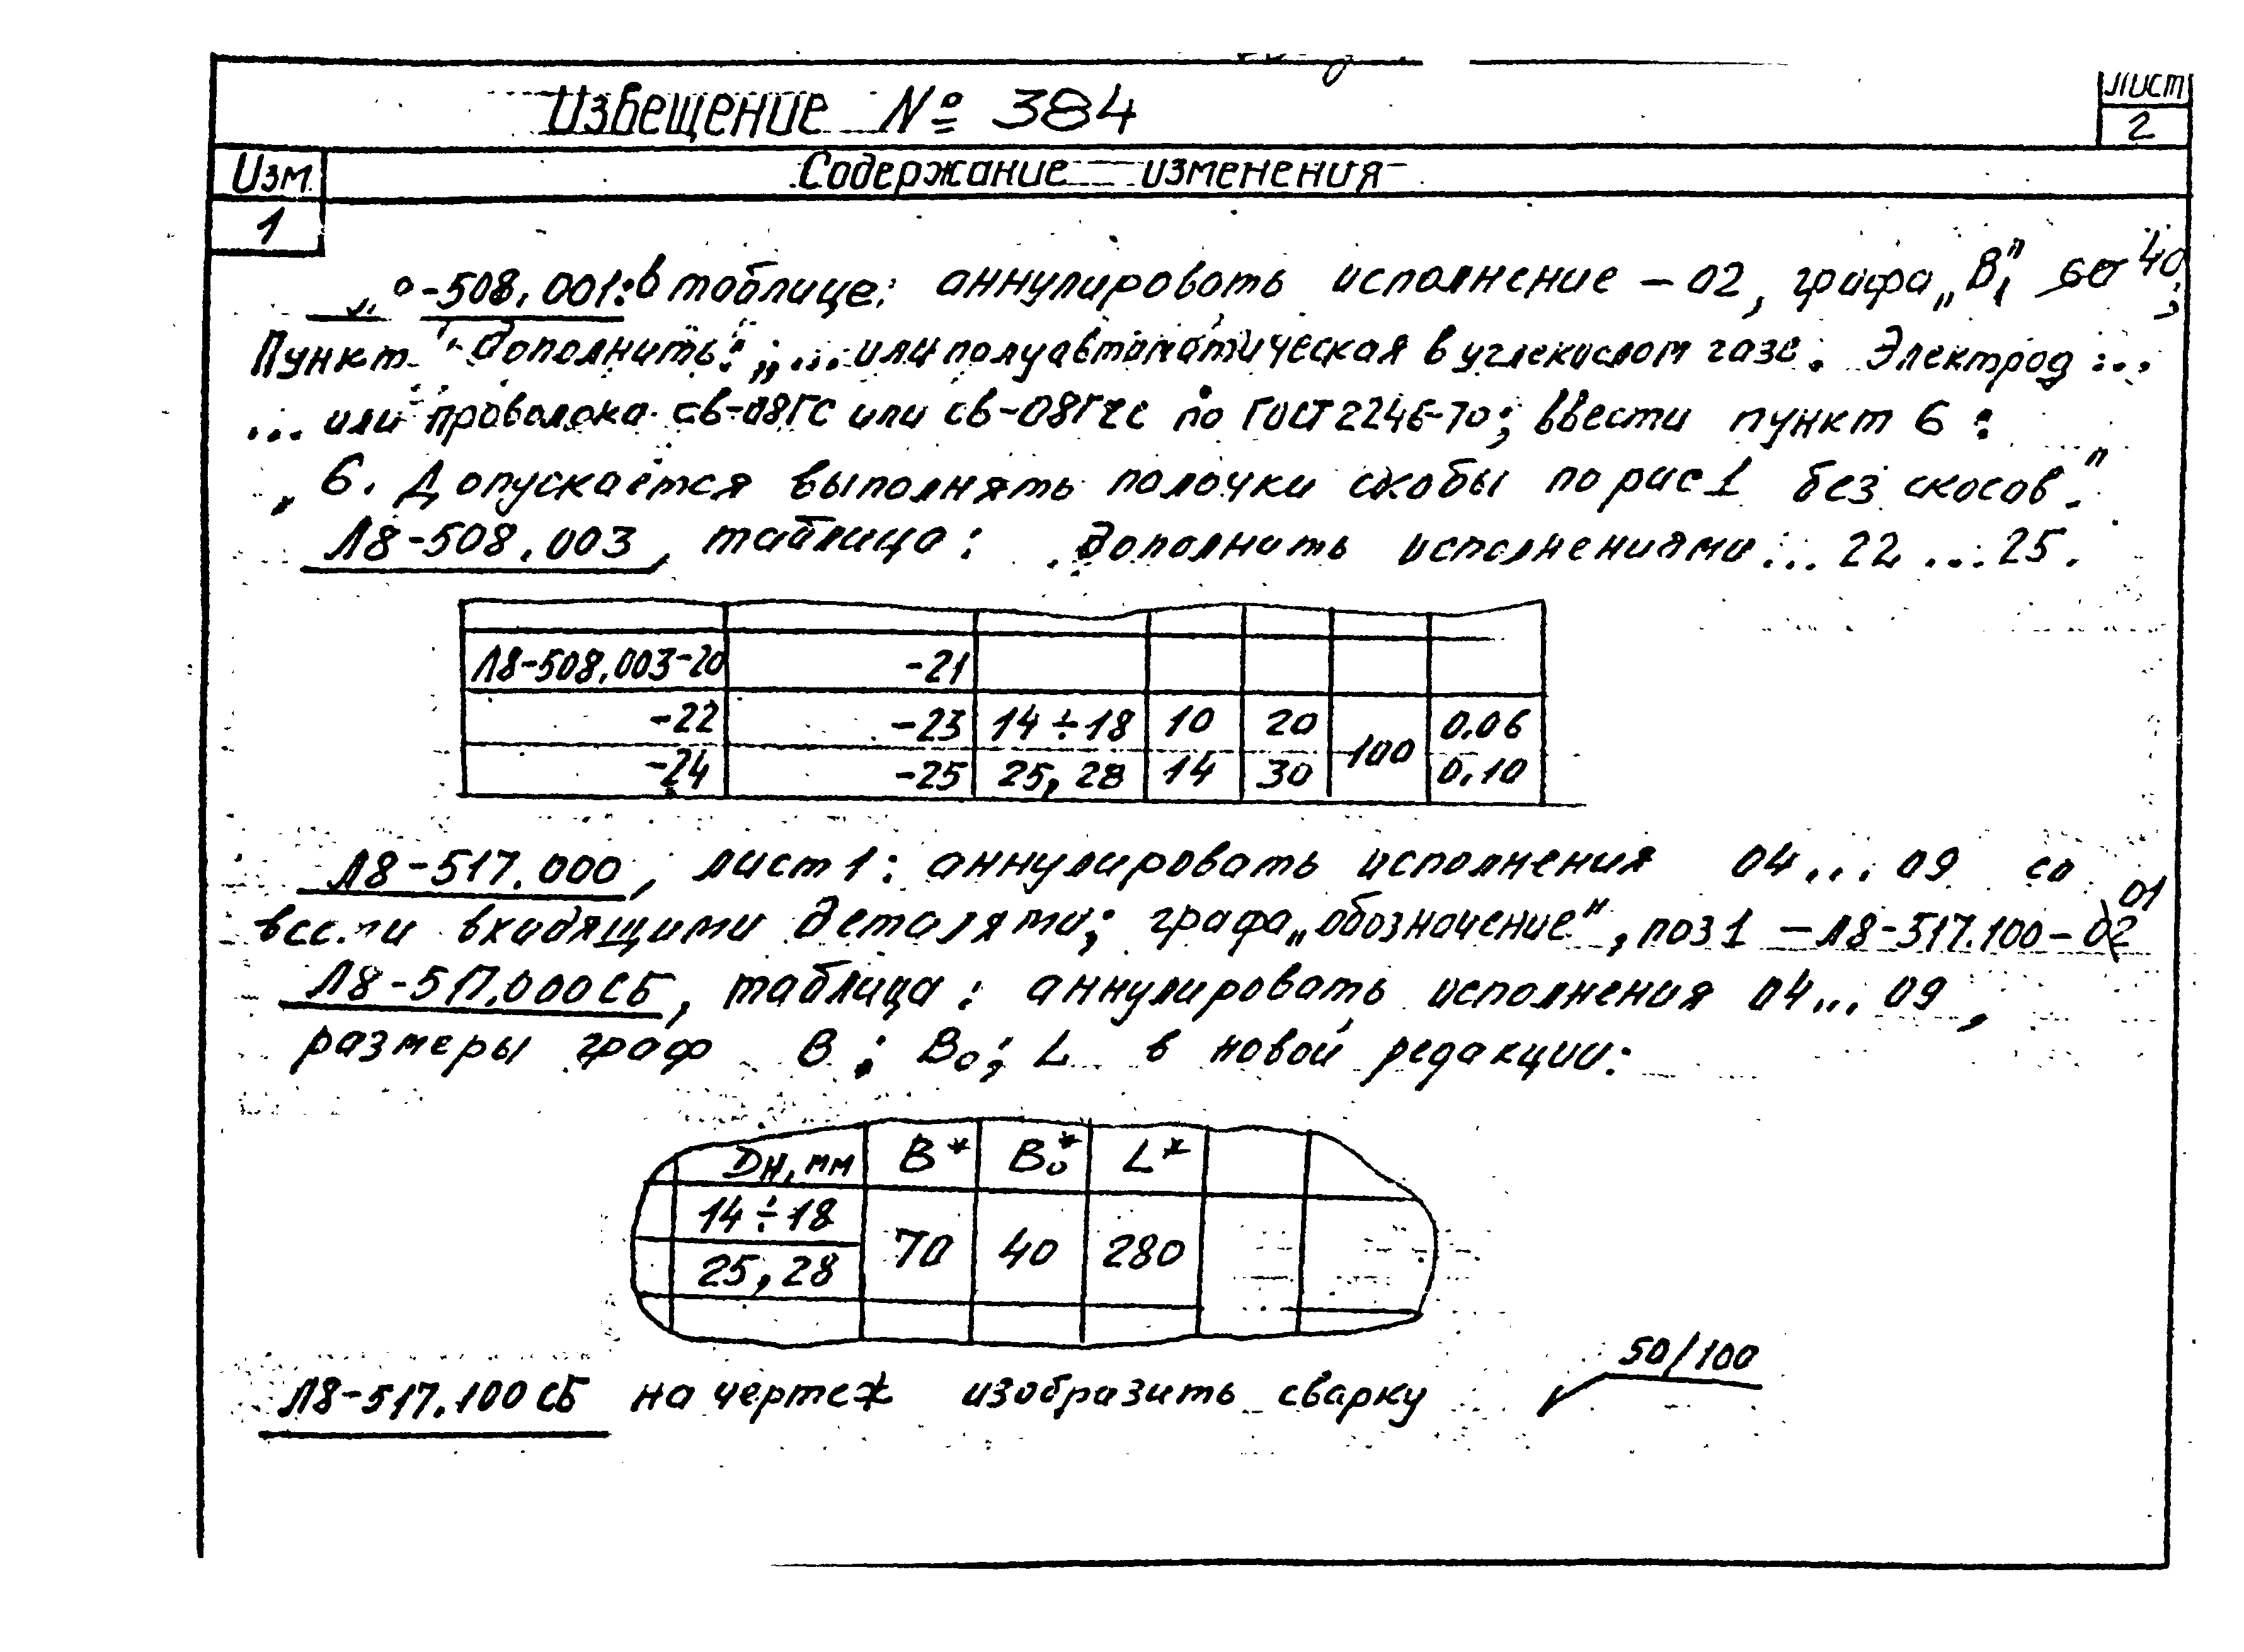 Извещение № 384
Лист
2
Изм.
Содержание изменения
1
-508.001: в таблице: аннулировать исполнение -02, графа „B₁" 60 40;
Пункт дополнить: „... или полуавтоматическая в углекислом газе. Электрод ...
... или проволока св-08ГС или св-08Г2С по ГОСТ 2246-70; ввести пункт 6:
„6. Допускается выполнять полочки скобы по рис 1 без скосов."
Л8-508.003, таблица: дополнить исполнениями ... 22 ... 25.
Л8-508.003-20 -21
-22 -23 14÷18 10 20 100 0.06
-24 -25 25, 28 14 30 0.10
Л8-517.000, лист 1: аннулировать исполнения 04...09 со
всеми входящими деталями; графа „обозначение", поз 1 – Л8-517.100-02 01
Л8-517.000СБ, таблица: аннулировать исполнения 04...09,
размеры граф В; В₀; L в новой редакции:
Dн, мм B* B₀* L*
14÷18 70 40 280
25, 28
Л8-517.100СБ на чертеж изобразить сварку 50/100